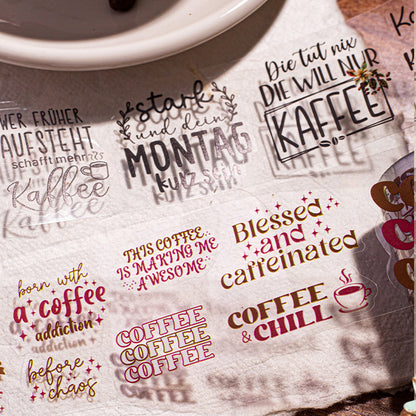 WER FRÜHER
AUFSTEHT
schafft mehr
Kaffee
stark
und dein
MONTAG
kurz sein
Die tut nix
DIE WILL NUR
KAFFEE
born with
a coffee
addiction
before
chaos
THIS COFFEE
IS MAKING ME
AWESOME
COFFEE
COFFEE
COFFEE
Blessed
and
caffeinated
COFFEE
& CHILL